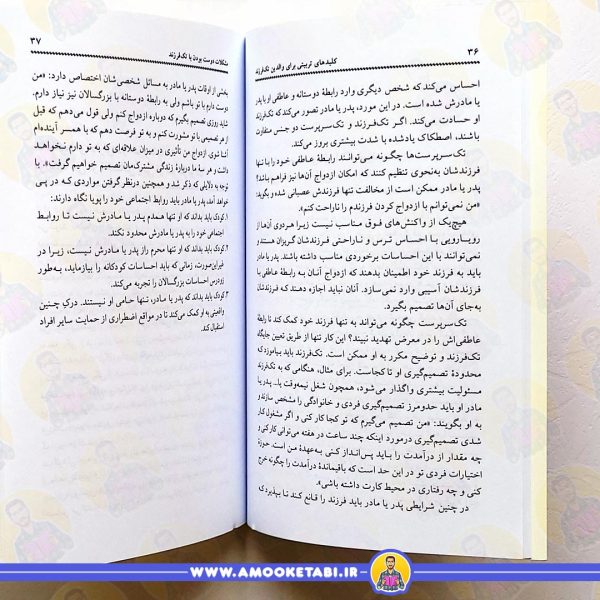 ۳۶
کلیدهای تربیتی برای والدین تک‌فرزند
احساس می‌کند که شخص دیگری وارد رابطهٔ دوستانه و عاطفی او با پدر
یا مادرش شده است. در این مورد، پدر یا مادر تصور می‌کند که تک‌فرزند
او حسادت می‌کند. اگر تک‌فرزند و تک‌سرپرست دو جنس متفاوت
باشند، اصطکاک یادشده با شدت بیشتری بروز می‌کند.
تک‌سرپرست‌ها چگونه می‌توانند رابطهٔ عاطفی خود را با تنها
فرزندشان به‌نحوی تنظیم کنند که امکان ازدواج آن‌ها نیز فراهم باشد؟
پدر یا مادر ممکن است از مخالفت تنها فرزندش عصبانی شده و بگوید:
«من نمی‌توانم با ازدواج کردن فرزندم را ناراحت کنم».
هیچ‌یک از واکنش‌های فوق مناسب نیست زیرا هردوی آن‌ها از
رویارویی با احساس ترس و ناراحتی فرزندشان گریزان هستند و
نمی‌توانند با این احساسات برخوردی مناسب داشته باشند. پدر یا مادر
باید به فرزند خود اطمینان بدهند که ازدواج آنان به رابطهٔ عاطفی با
فرزندشان آسیبی وارد نمی‌سازد. آنان نباید اجازه دهند که فرزندشان
به‌جای آن‌ها تصمیم بگیرد.
تک‌سرپرست چگونه می‌تواند به تنها فرزند خود کمک کند تا رابطهٔ
عاطفی‌اش را در معرض تهدید نبیند؟ این کار تنها از طریق تعیین جایگاه
تک‌فرزند و توضیح مکرر به او ممکن است. تک‌فرزند باید بیاموزد که
محدودهٔ تصمیم‌گیری او تا کجاست. برای مثال، هنگامی که به تک‌فرزند
مسئولیت بیشتری واگذار می‌شود، همچون شغل نیمه‌وقت یا... پدر یا
مادر او باید حدومرز تصمیم‌گیری فردی و خانوادگی را مشخص سازند و
به او بگویند: «من تصمیم می‌گیرم که تو کجا کار کنی و اگر مشغول کار
شدی تصمیم‌گیری درمورد اینکه چند ساعت در هفته می‌توانی کار کنی و
چه مقدار از درآمدت را باید پس‌انداز کنی به‌عهدهٔ من است. حوزهٔ
اختیارات فردی تو در این حد است که باقیماندهٔ درآمدت را چگونه خرج
کنی و چه رفتاری در محیط کارت داشته باشی».
در چنین شرایطی پدر یا مادر باید فرزند را قانع کند تا بپذیرد که
مشکلات دوست بودن با تک‌فرزند
۳۷
بعضی از اوقات پدر یا مادر به مسائل شخصی‌شان اختصاص دارد: «من
دوست دارم با تو باشم ولی به رابطهٔ دوستانه با بزرگسالان نیز نیاز دارم.
شاید روزی تصمیم بگیرم که دوباره ازدواج کنم ولی قول می‌دهم که قبل
از هر تصمیمی با تو مشورت کنم و به تو فرصت دهم که با همسر آینده‌ام
آشنا شوی. ازدواج من تأثیری در میزان علاقه‌ای که به تو دارم نخواهد
داشت و هر سهٔ ما دربارهٔ زندگی مشترک‌مان تصمیم خواهیم گرفت». با
توجه به دلایلی که ذکر شد و همچنین درنظر گرفتن مواردی که در پی
خواهد آمد، پدر یا مادر باید روابط اجتماعی خود را پویا نگاه دارند:
۱. کودک باید بداند که او تنها همدم پدر یا مادرش نیست تا روابط
اجتماعی خود را به پدر یا مادرش محدود نکند.
۲. کودک باید بداند که او تنها محرم راز پدر یا مادرش نیست، زیرا در
غیراین‌صورت، زمانی که باید احساسات کودکانه را بیازماید، به‌طور
زودرس احساسات بزرگسالان را تجربه می‌کند.
۳. کودک باید بداند که پدر یا مادر، تنها حامی او نیستند. درک چنین
واقعیتی به او کمک می‌کند تا در مواقع اضطراری از حمایت سایر افراد
استقبال کند.
WWW.AMOOKETABI.IR